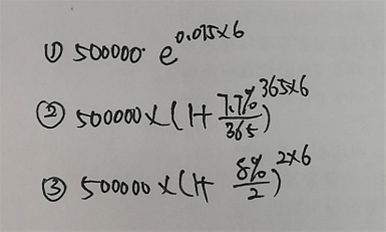 ① 500000· e^0.075×6
② 500000×(1+ 7.7%/365)^365×6
③ 500000×(1+ 8%/2)^2×6